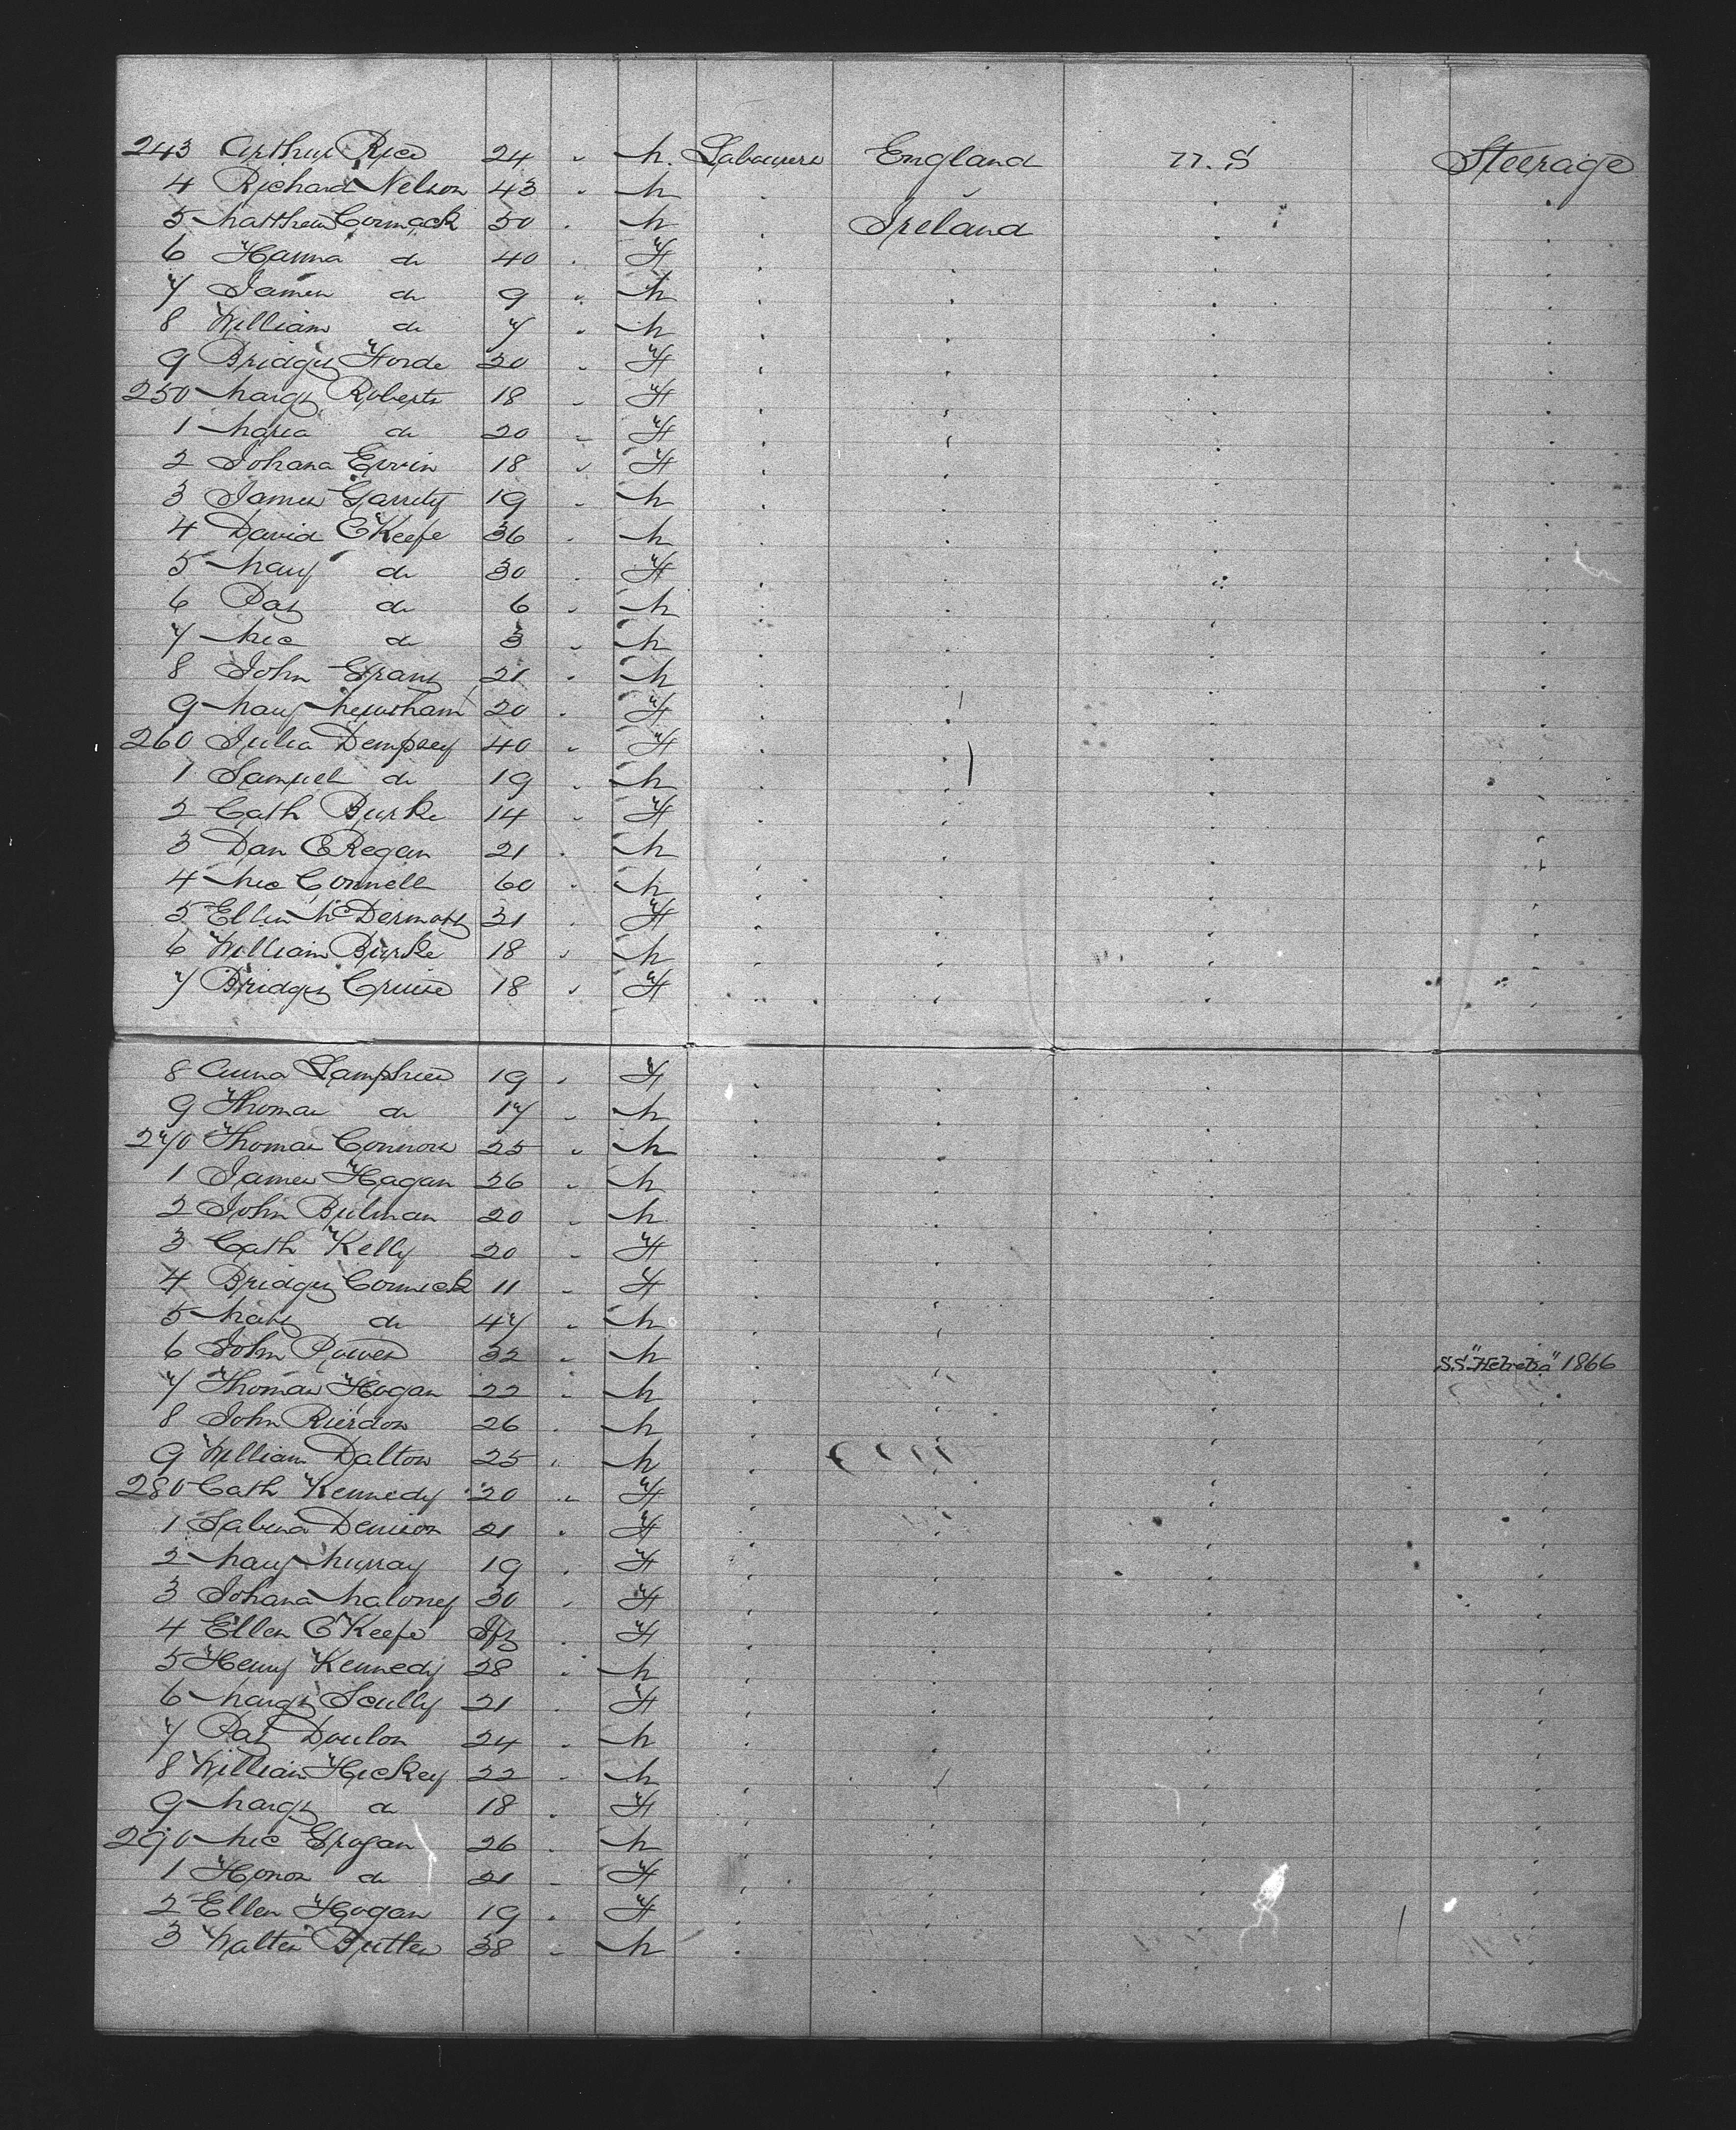 243 Arthur Rice 24 " M. Labourers England U. S Steerage
4 Richard Nelson 43 " M " " " "
5 Matthew Cormack 50 " M " Ireland " "
6 Hanna do 40 " F " " " "
7 James do 9 " M " " " "
8 William do 7 " M " " " "
9 Bridgt Forde 20 " F " " " "
250 Margt Roberts 18 " F " " " "
1 Maria do 20 " F " " " "
2 Johana Ervin 18 " F " " " "
3 James Garrety 19 " M " " " "
4 David O'Keefe 36 " M " " " "
5 Mary do 30 " F " " " "
6 Pat do 6 " M " " " "
7 Mic do 3 " M " " " "
8 John Grant 21 " M " " " "
9 Mary 20 " F " " " "
260 Julia Dempsey 40 " F " " " "
1 Samuel do 19 " M " " " "
2 Cath Burke 14 " F " " " "
3 Dan O'Regan 21 " M " " " "
4 Mic Connell 60 " M " " " "
5 Ellen McDermott 31 " F " " " "
6 William Burke 18 " M " " " "
7 Bridgt Cruise 18 " F " " " "
8 Anna Lamphier 19 " F " " " "
9 Thomas do 17 " M " " " "
270 Thomas Connors 25 " M " " " "
1 James Hagan 26 " M " " " "
2 John Bulman 20 " M " " " "
3 Cath Kelly 20 " F " " " "
4 Bridgt Cormick 11 " F " " " "
5 Matt do 47 " M " " " "
6 John Power 32 " M " " " "
S.S. "Helvetia" 1866
7 Thomas Hogan 22 " M " " " "
8 John Rierdon 26 " M " " " "
9 William Dalton 25 " M " " " "
280 Cath Kennedy 20 " F " " " "
1 Sabina Denison 21 " F " " " "
2 Mary Murray 19 " F " " " "
3 Johana Maloney 30 " F " " " "
4 Ellen O'Keefe Inft " F " " " "
5 Henry Kennedy 28 " M " " " "
6 Margt Scully 21 " F " " " "
7 Pat 24 " M " " " "
8 William Hickey 22 " M " " " "
9 Margt do 18 " F " " " "
290 Mic Grogan 26 " M " " " "
1 Honor do 21 " F " " " "
2 Ellen Hogan 19 " F " " " "
3 Walter Butler 38 " M " " " "